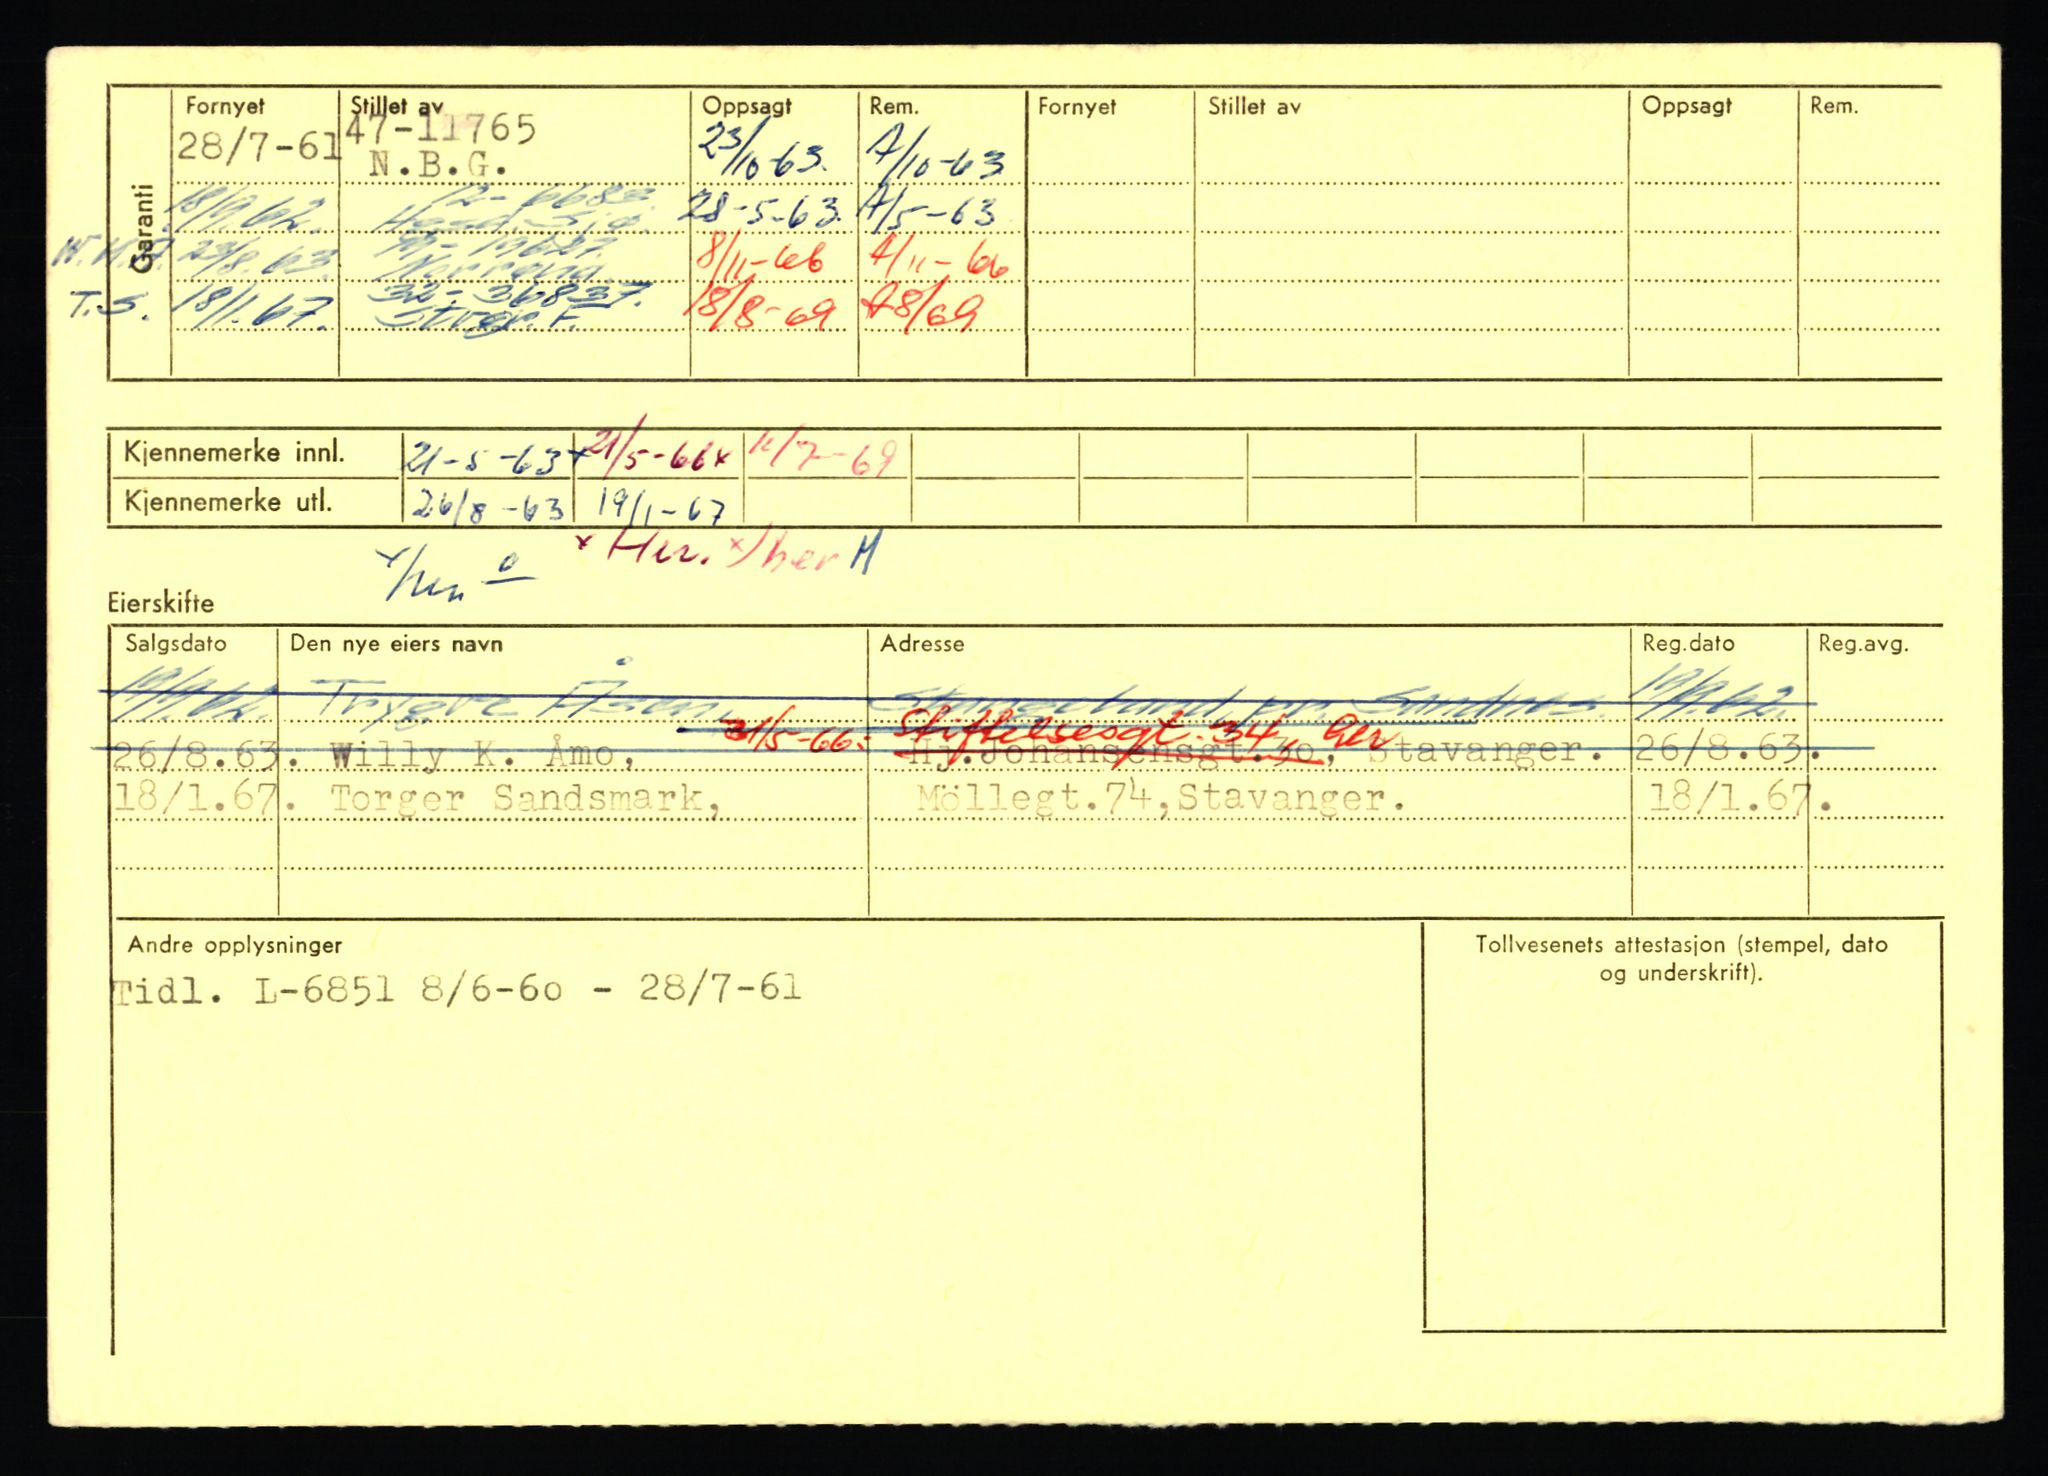 Garanti
Fornyet Stillet av Oppsagt Rem. Fornyet Stillet av Oppsagt Rem.
28/7-61 47-11765 N.B.G. 23/10-63. A/10-63
18/9.62. 12-6683. 28-5-63. A/5-63
23/8.63. 8/11-66 A/11-66
T.S. 18/1.67. 32-36837. 18/8-69 A8/69
Kjennemerke innl. 21-5-63x 21/5-66x 11/7-69
Kjennemerke utl. 26/8-63 19/1-67
x Her. x/her M
x/her
Eierskifte
Salgsdato Den nye eiers navn Adresse Reg.dato Reg.avg.
19/9.62. Trygve Åsen, Sandnes. 19/9.62.
31/5-66. Stiftelsesgt. 34, her
26/8.63. Willy K. Åmo, Hj.Johansensgt.30, Stavanger. 26/8.63.
18/1.67. Torger Sandsmark, Möllegt.74,Stavanger. 18/1.67.
Andre opplysninger
Tidl. L-6851 8/6-60 - 28/7-61
Tollvesenets attestasjon (stempel, dato
og underskrift).